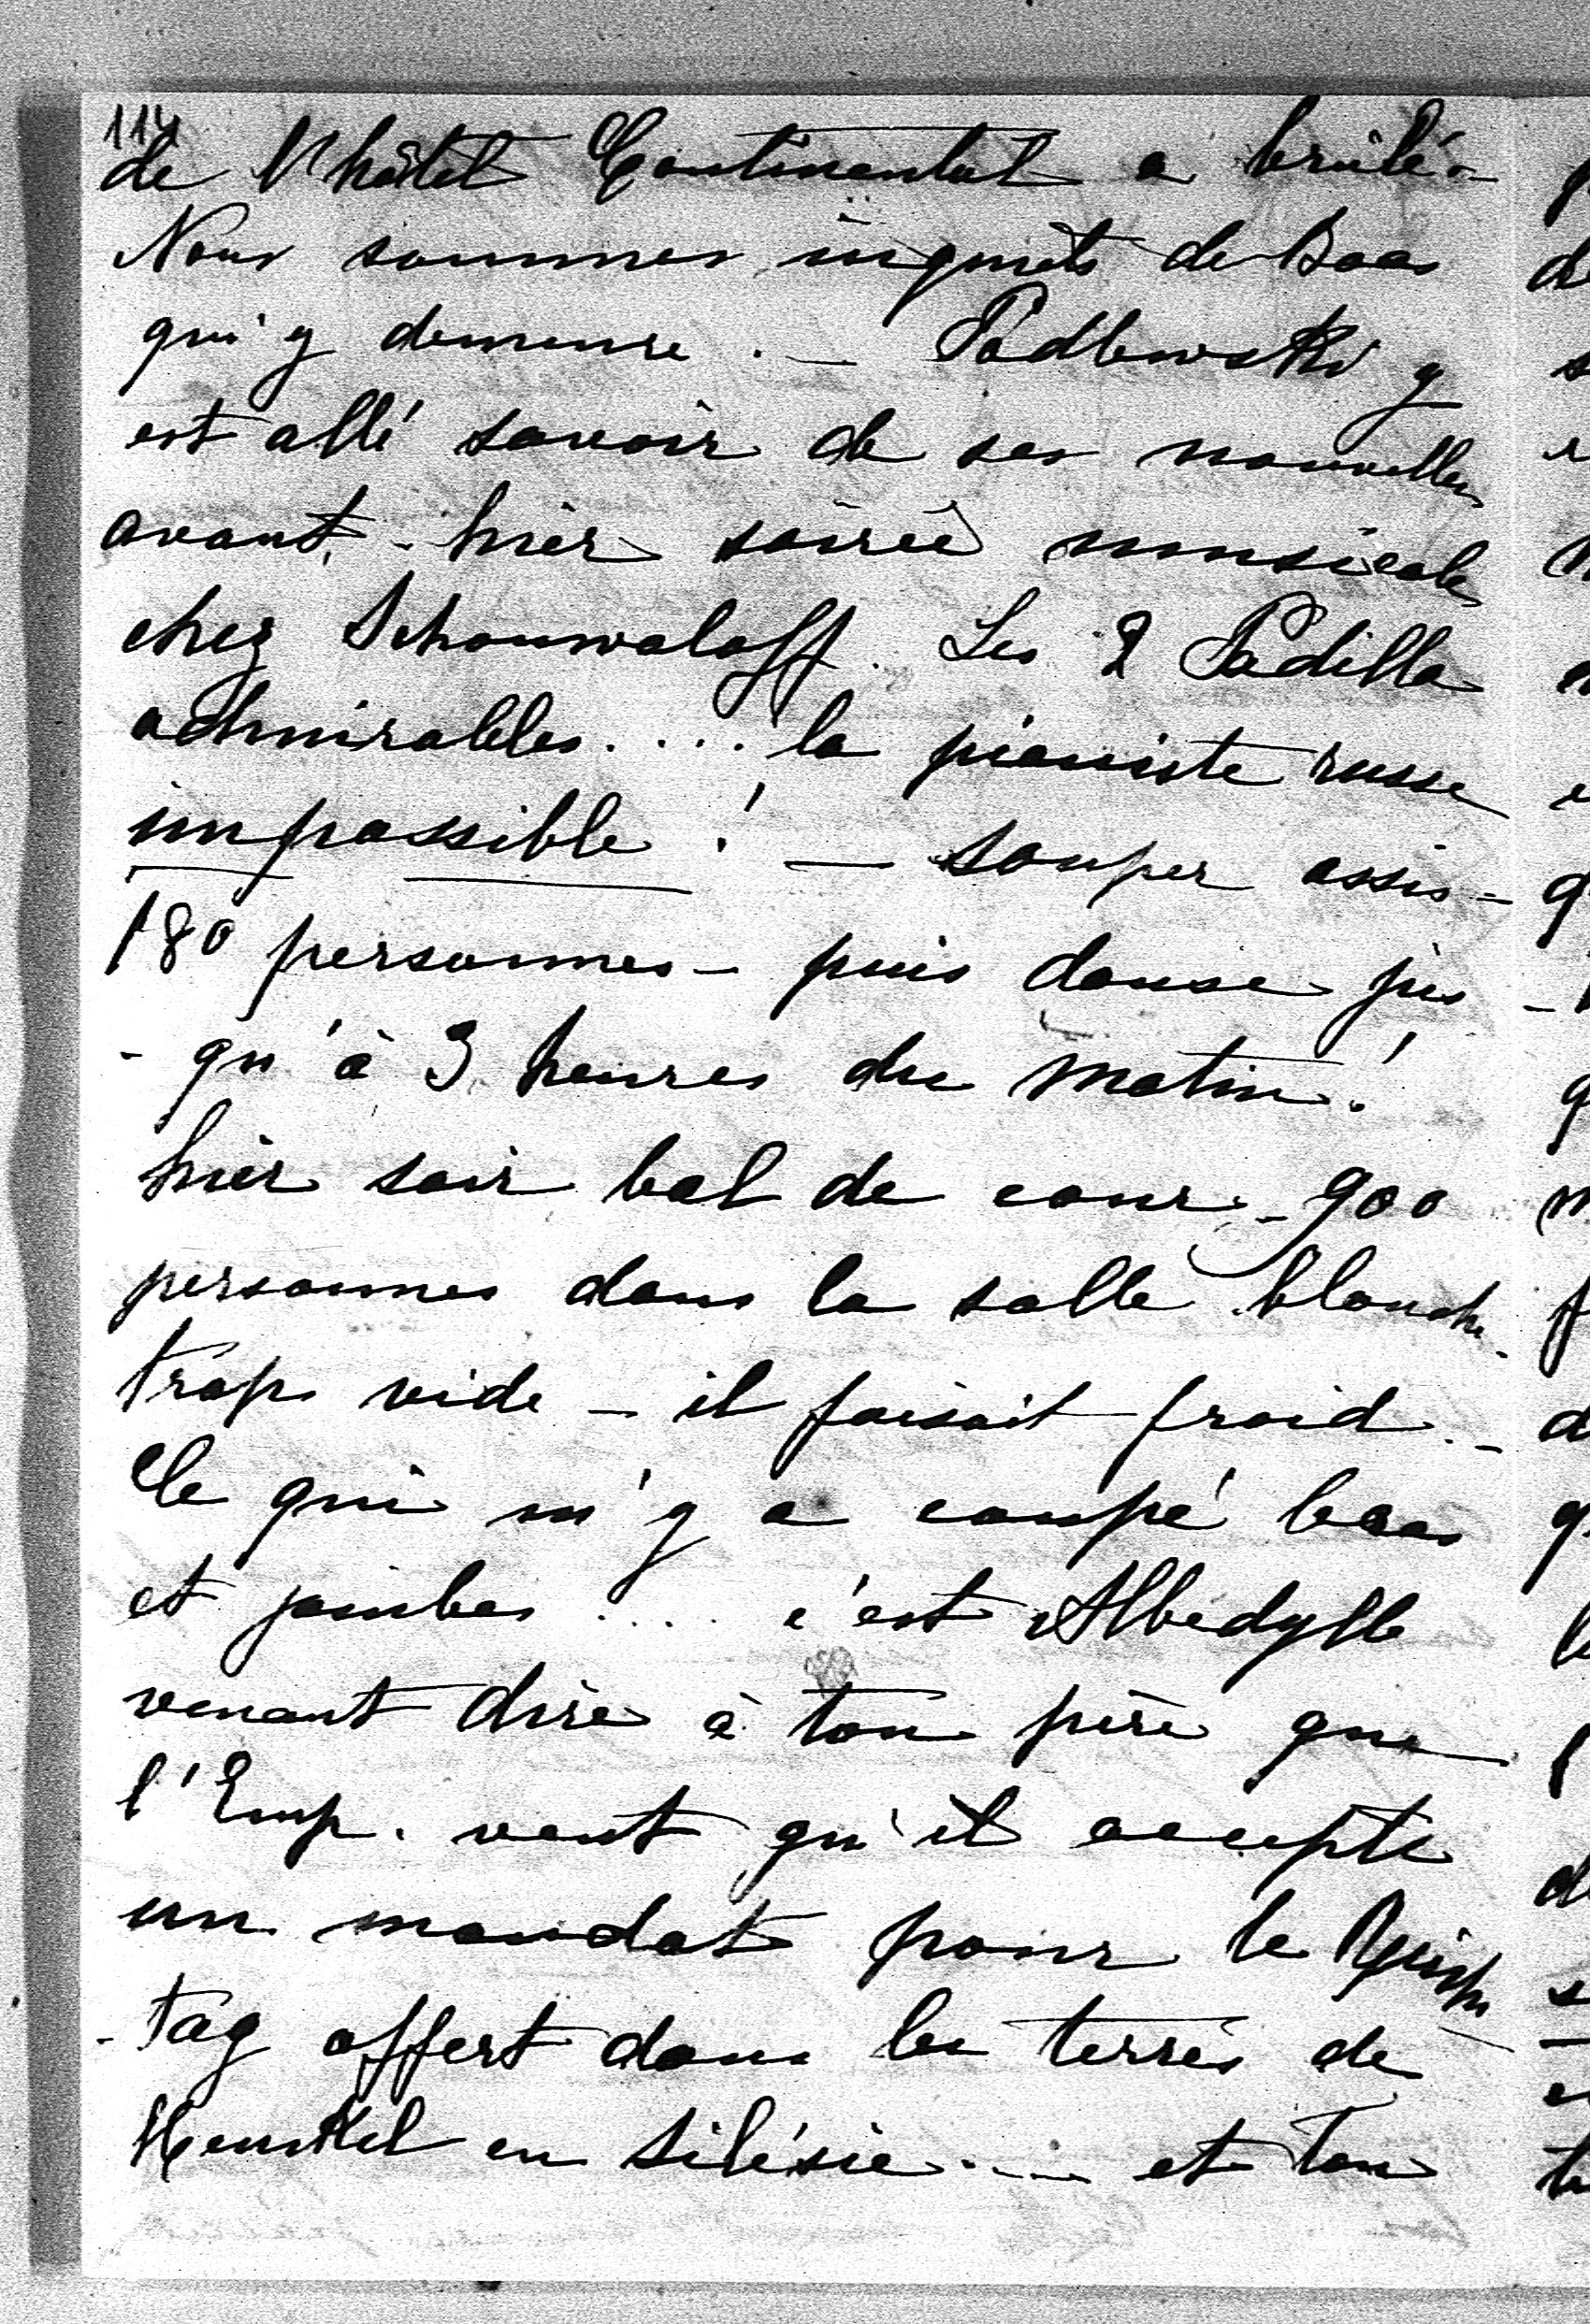 114
de l'hôtel Continental a brûlé -
Nous sommes inquiets de Boos
qui y demeure. — Podlewski y
est allé savoir de ses nouvelles
avant-hier soirée musicale
chez Schouwaloff. Les 2 Padilla
admirables.... la pianiste russe
impassible ! — Souper assis -
180 personnes - puis danse jus -
- qu'à 3 heures du matin !
hier soir bal de cour - 900
personnes dans la salle blanche -
trop vide - il faisait froid. -
Ce qui m'y a coupé bras
et jambes .... c'est Albedylle
venant dire à ton père que
l'Emp. veut qu'il accepte
un mandat pour le Reichs
- tag offert dans les terres de
Henckel en Silésie.... et ton